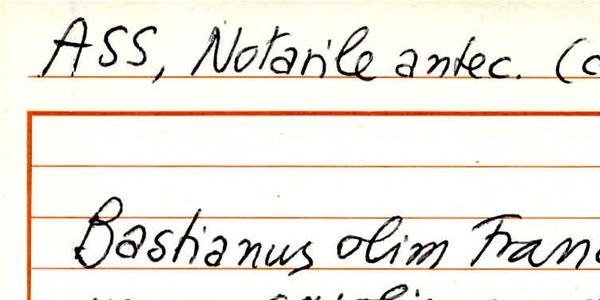 ASS, Notarile antec. (
Bastianus olim Fran